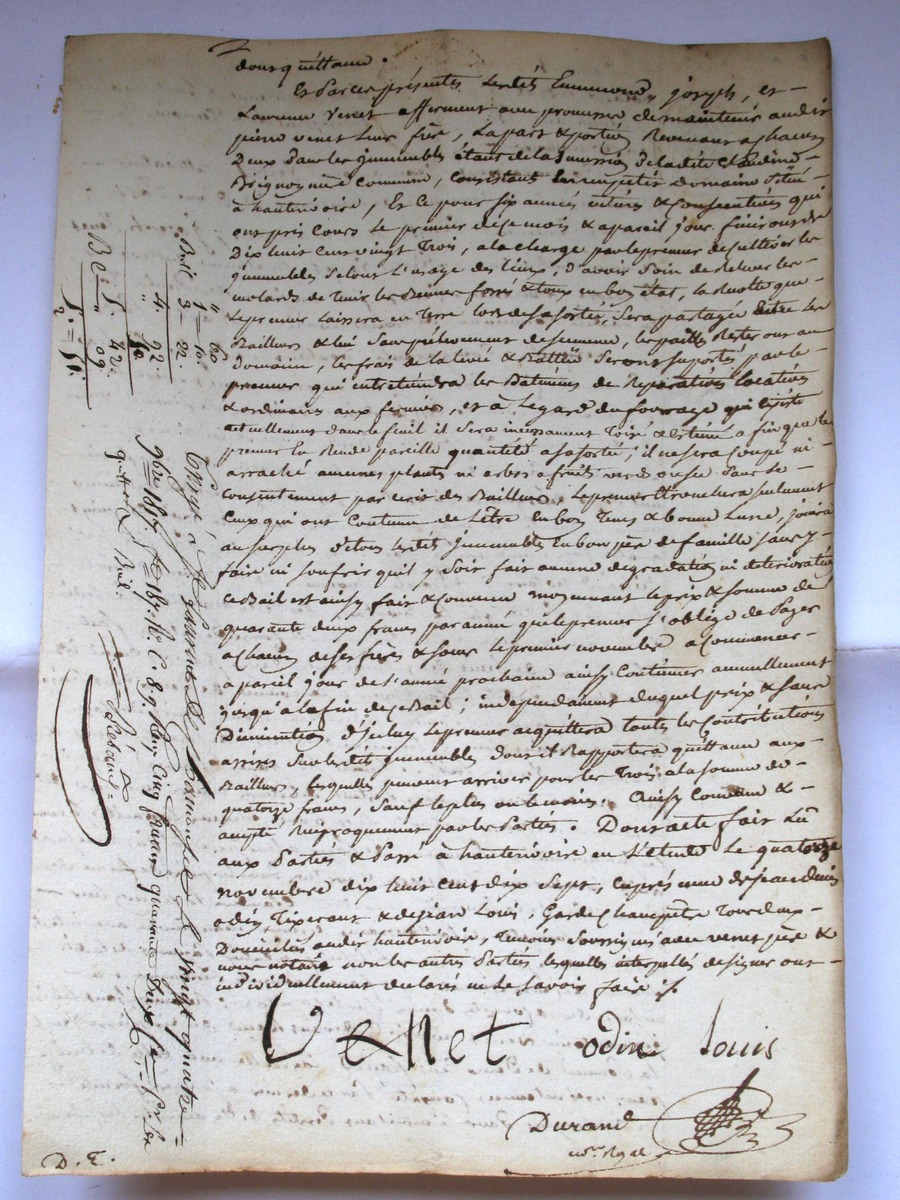 dont quittance.
Et Par ces présentes lesdits Emmimond, joseph, et
Laurence venet afferment avec promesse de maintenir audit
pierre venet leur frère, La part & portion Revenant a chacun
Deux dans les jmmeubles étant de la succession de ladite Claudine
mère commune, Consistant En un petit Domaine Situé
à hauterivoire, Et Ce pour Six années entières & Consécutives qui
ont pris Cours le premier de ce mois & a pareil jour finiront
Dix huit Cent vingt Trois, a la charge par le preneur de Cultiver les
jmmeubles Selont L'usage des lieux, d'avoir Soin de Relever les
molards de Tenir les fossés & toux en bon état, la Recolte que
le preneur laissera en Terre lors de sa sortie, Sera partagée Entre les
Bailleurs & lui Sans prélevement de semence, les pailles Resteront au
Domaine, les frais de la levée & Battue Seront suportés par le
preneur qui entretiendra les Batimens de Réparations locatives
& ordinaires aux fermiers, et à L'égard du fourrage qui Existe
actuellement dans le fenil il Sera incessamment Toisé & Estimé a fin que le
preneur En Rende pareille quantité a sa sortie; il ne sera Coupé ni
arraché aucunes plants ni arbres a fruits verds ou sec Sans le
Consentement par ecrit des Bailleurs, le preneur Ebranchera seulement
Ceux qui ont Coutume de L'être En bon Tems & bonne Lune, jouira
au Surplus de tous lesdits jmmeubles En bon père de famille Sans y
faire ni soufrir quil y Soit fait aucune degradation ni deterioration
Ce Bail est ainsy fait & Convenu moyennant le prix & Somme de
quarante deux francs par année que le preneur S'oblige de Payer
a Chacun de Ses frères & Sœur le premier novembre a Commencer
a pareil jour de L'année prochaine ainsy Continuer annuellement
jusqu'à la fin de Ce Bail; indépendament duquel prix & Sans
Diminution d'jceluy le preneur acquittera toutes les Contributions
assises Sur lesdits jmmeubles dont il Rapportera quittance aux
Bailleurs, lesquelles peuvent arriver pour les Trois a la somme de
quatorze francs, Sauf le plus ou le moins. Ainsy Convenu &
accepté Réciproquement par les Parties. Dont acte fait Lû
aux Parties & Passé à hauterivoire en L'étude Le quatorze
novembre dix huit Cent dix Sept, en présence de jean denis
odin, Tixerant & de jean Louis, Garde Champêtre Tous deux
Domiciliés audit hauterivoire, Temoins Soussignés avec venet père &
nous notaire non les autres Parties lesquelles interpellés de signer ont
individuellement declarés ne le Savoir faire /.
Venet odin Louis
Durand
no.re Royal
D. E.
Enrgé à St. Laurent de Chamousset le vingt quatre
9bre 1817 fo 167 Ro C. 8. 9 Reçu Cinq francs quarante Deux
quittance & Bail.
Bail
5. 42.